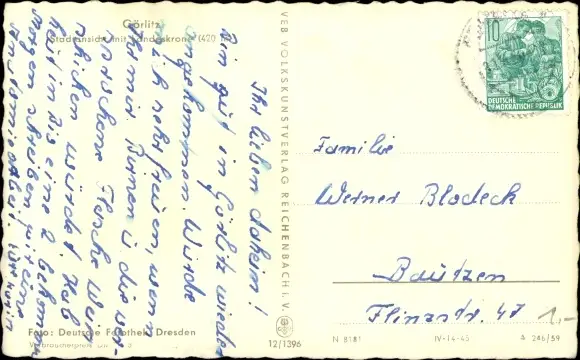 Görlitz
Stadtansicht mit Landeskrone (420 m)
Ihr lieben daheim!
Bin gut in Görlitz wieder
angekommen. Würde
mich sehr freuen, wenn
Ihr mir Birnen u. die ver-
sprochene Flasche Wein
schicken würdet. Hab
heut in Dis eine 2 bekommen
Morgen schreiben wir eine
Foto: Deutsche Fotothek Dresden
VEB VOLKSKUNSTVERLAG REICHENBACH I. V.
12/1396
10
DEUTSCHE
DEMOKRATISCHE REPUBLIK
Familie
Werner Bladeck
Bautzen
Flinzstr. 47
1,-
N 8181
IV-14-45
S 246/59